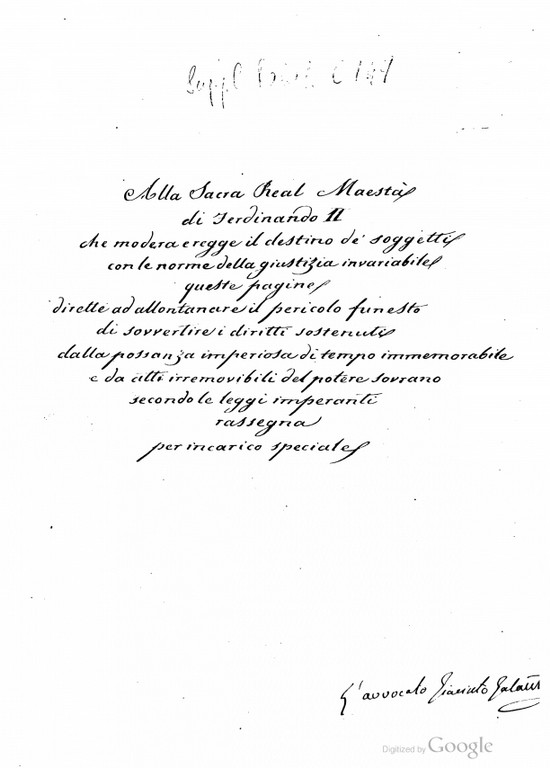 Suppl. Palat. C 147
Alla Sacra Real Maestà
di Ferdinando II
che modera e regge il destino de' soggetti
con le norme della giustizia invariabile
queste pagine
dirette ad allontanare il pericolo funesto
di sovvertire i diritti sostenuti
dalla possanza imperiosa di tempo immemorabile
e da atti irremovibili del potere sovrano
secondo le leggi imperanti
rassegna
per incarico speciale
L'avvocato Giacinto Galanti
Digitized by Google